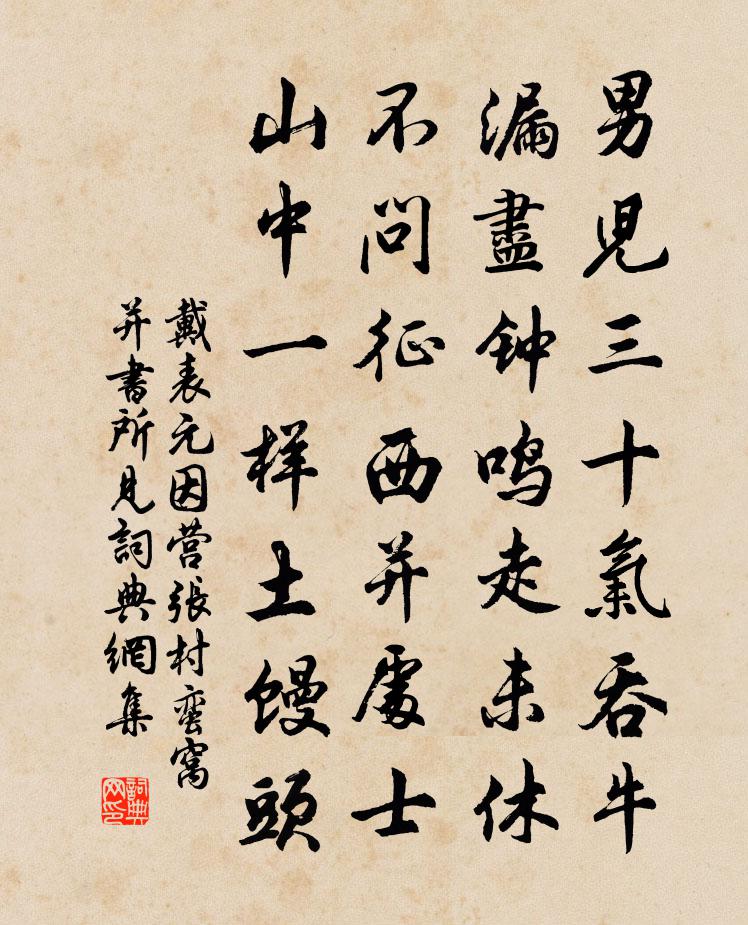 男児三十氣吞牛
漏盡钟鸣走未休
不问征西并處士
山中一样土馒頭
戴表元因营張村蛮窩
并書所見詞典網集
詞典网印